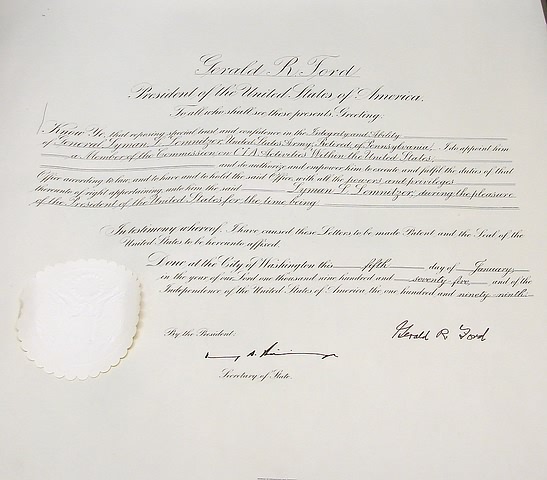 Gerald R. Ford
President of the United States of America.
To all who shall see these presents, Greeting:
Know Ye, that reposing special trust and confidence in the Integrity and Ability
of General Lyman L. Lemnitzer, United States Army, Retired, of Pennsylvania, I do appoint him
a Member of the Commission on CIA Activities Within the United States,
and do authorize and empower him to execute and fulfil the duties of that
Office according to law, and to have and to hold the said Office, with all the powers and privileges
thereunto of right appertaining, unto him the said Lyman L. Lemnitzer, during the pleasure
of the President of the United States for the time being.
In testimony whereof, I have caused these Letters to be made Patent and the Seal of the
United States to be hereunto affixed.
Done at the City of Washington this fifth day of January
in the year of our Lord one thousand nine hundred and seventy-five, and of the
Independence of the United States of America the one hundred and ninety-ninth.
By the President:
Gerald R. Ford
Secretary of State.